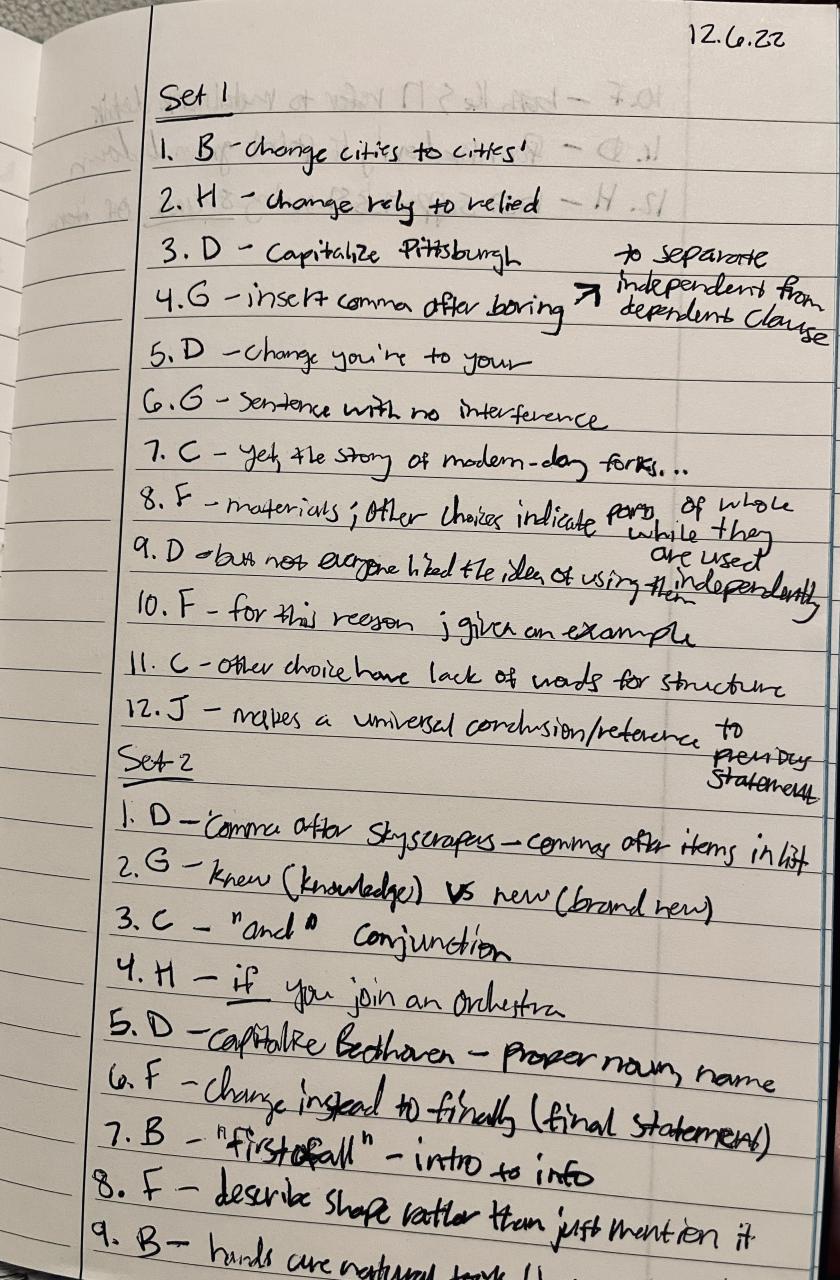 12.6.22
Set 1
1. B - change cities to cities'
2. H - change rely to relied
3. D - Capitalize Pittsburgh
4. G - insert comma after boring ↗ to separate independent from dependent clause
5. D - change you're to your
6. G - sentence with no interference
7. C - yet, the story of modern-day forks...
8. F - materials ; other choices indicate parts of whole while they are used independently
9. D - but not everyone liked the idea of using them
10. F - for this reason ; given an example
11. C - other choice have lack of words for structure
12. J - makes a universal conclusion/reference to previous statement
Set 2
1. D - Comma after skyscrapers - commas after items in list
2. G - knew (knowledge) vs new (brand new)
3. C - "and" conjunction
4. H - if you join an orchestra
5. D - capitalize Beethoven - proper noun, name
6. F - change instead to finally (final statement)
7. B - "first of all" - intro to info
8. F - describe shape rather than just mention it
9. B - hands are natural